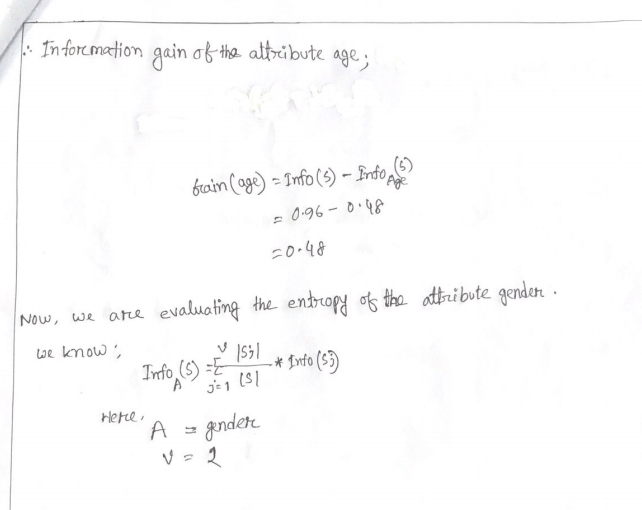 ∴ Information gain of the attribute age;
Gain(age) = Info(S) - Info_Age(S)
= 0.96 - 0.48
= 0.48
Now, we are evaluating the entropy of the attribute gender.
we know;
Info_A(S) = Σ_{j=1}^{v} |Sj| / |S| * Info(Sj)
Here,
A = gender
v = 2